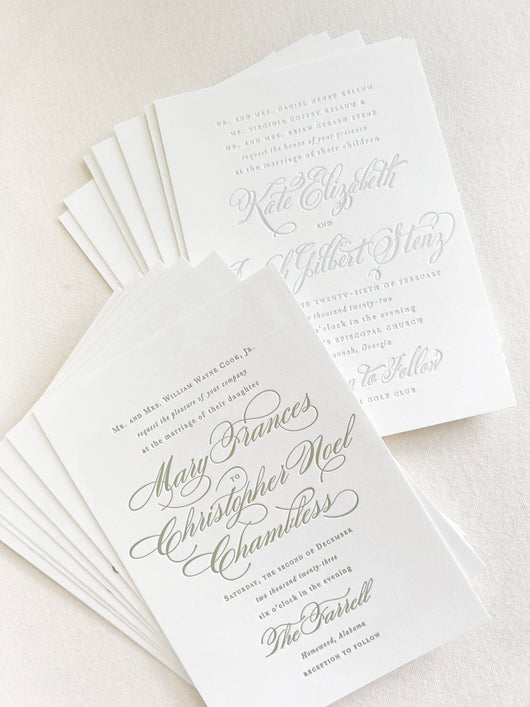 Dr. and Mrs. Daniel Henry Kellum
Ms. Virginia Coffey Kellum &
Mr. and Mrs. Brian Gerard Stenz
request the honor of your presence
at the marriage of their children
Kate Elizabeth
and
Gilbert Stenz
the twenty-sixth of February
two thousand twenty-two
o'clock in the evening
Episcopal Church
Georgia
to Follow
Golf Club
Mr. and Mrs. William Wayne Cook, Jr.
request the pleasure of your company
at the marriage of their daughter
Mary Frances
to
Christopher Noel
Chambless
Saturday, the second of December
two thousand twenty-three
six o'clock in the evening
The Farrell
Homewood, Alabama
reception to follow